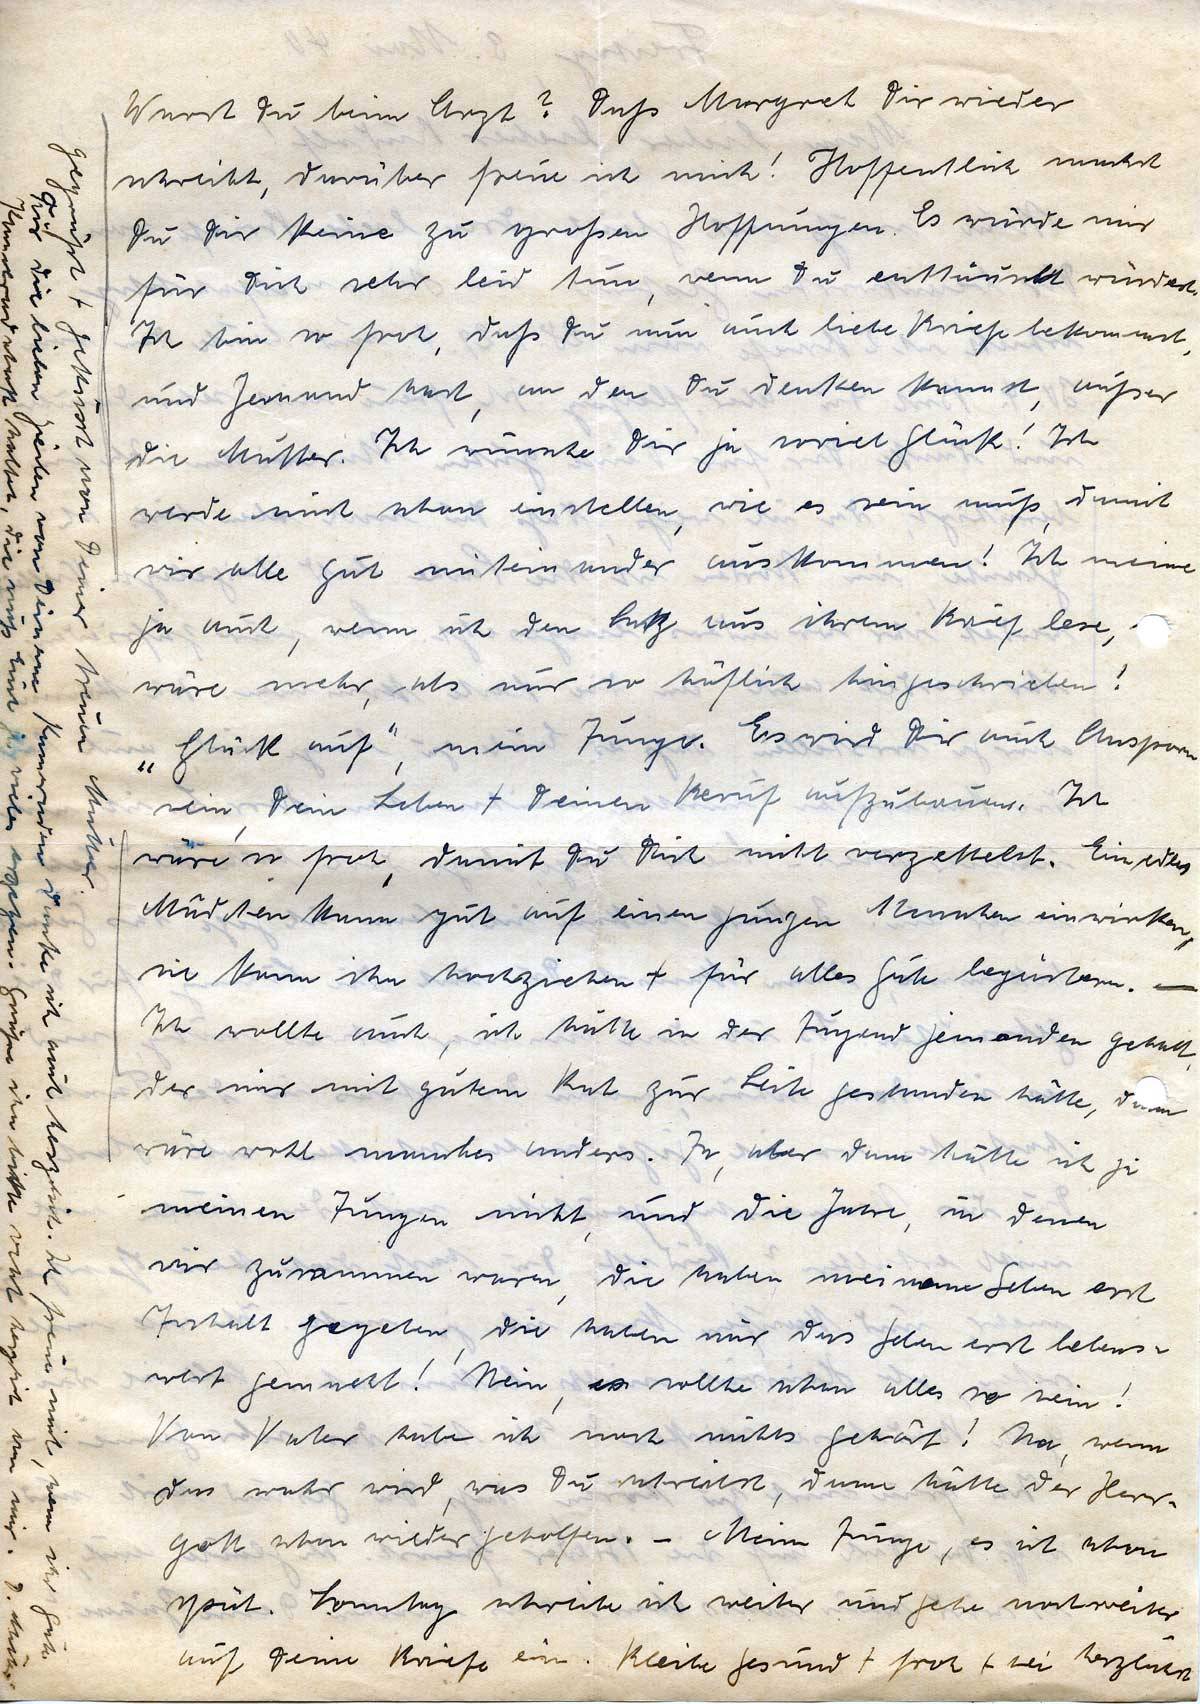 Warst Du beim Arzt? Daß Margret Dir wieder
schreibt, darüber freue ich mich! Hoffentlich machst
Du Dir keine zu großen Hoffnungen. Es würde mir
für Dich sehr leid tun, wenn Du enttäuscht würdest.
Ich bin so froh, daß Du nun auch liebe Briefe bekommst,
und Jemand hast, an den Du denken kannst, außer
die Mutter. Ich wünsche Dir ja soviel Glück! Ich
werde mich schon einstellen, wie es sein muß, damit
wir alle gut miteinander auskommen! Ich meine
ja auch, wenn ich den Satz aus ihrem Brief lese,
wäre mehr, als nur so höflich hingeschrieben!
„Glück auf", mein Junge. Es wird Dir auch Ansporn
sein, Dein Leben + Deinen Beruf aufzubauen. Ich
wäre so froh, damit Du Dich nicht verzettelst. Ein edles
Mädchen kann gut auf einen jungen Menschen einwirken,
sie kann ihn hochziehen + für alles Gute begeistern. —
Ich wollte auch, ich hätte in der Jugend jemanden gehabt,
der mir mit gutem Rat zur Seite gestanden hätte, dann
wäre wohl manches anders. Ja, aber dann hätte ich ja
meinen Jungen nicht, und die Jahre, in denen
wir zusammen waren, die haben meinem Leben erst
Inhalt gegeben, die haben mir das Leben erst lebens-
wert gemacht! Nein, es sollte schon alles so sein!
Von Vater habe ich noch nichts gehört! Na, wenn
das wahr wird, was Du schreibst, dann hätte der Herr-
gott schon wieder geholfen. – Mein Junge, es ist schon
spät. Sonntag schreibe ich weiter und gehe noch weiter
auf Deine Briefe ein. Bleibe gesund + froh + sei herzlichst
gegrüßt + geküsst von Deiner treuen Mutter.
Für die lieben Zeilen von Deinem Kameraden danke ich auch herzlich. Ich freue mich, wenn ihr gute
Kameradschaft haltet, die muß euch ja vieles ersetzen. Grüße ihn bitte recht herzlich von mir. D. Mutter